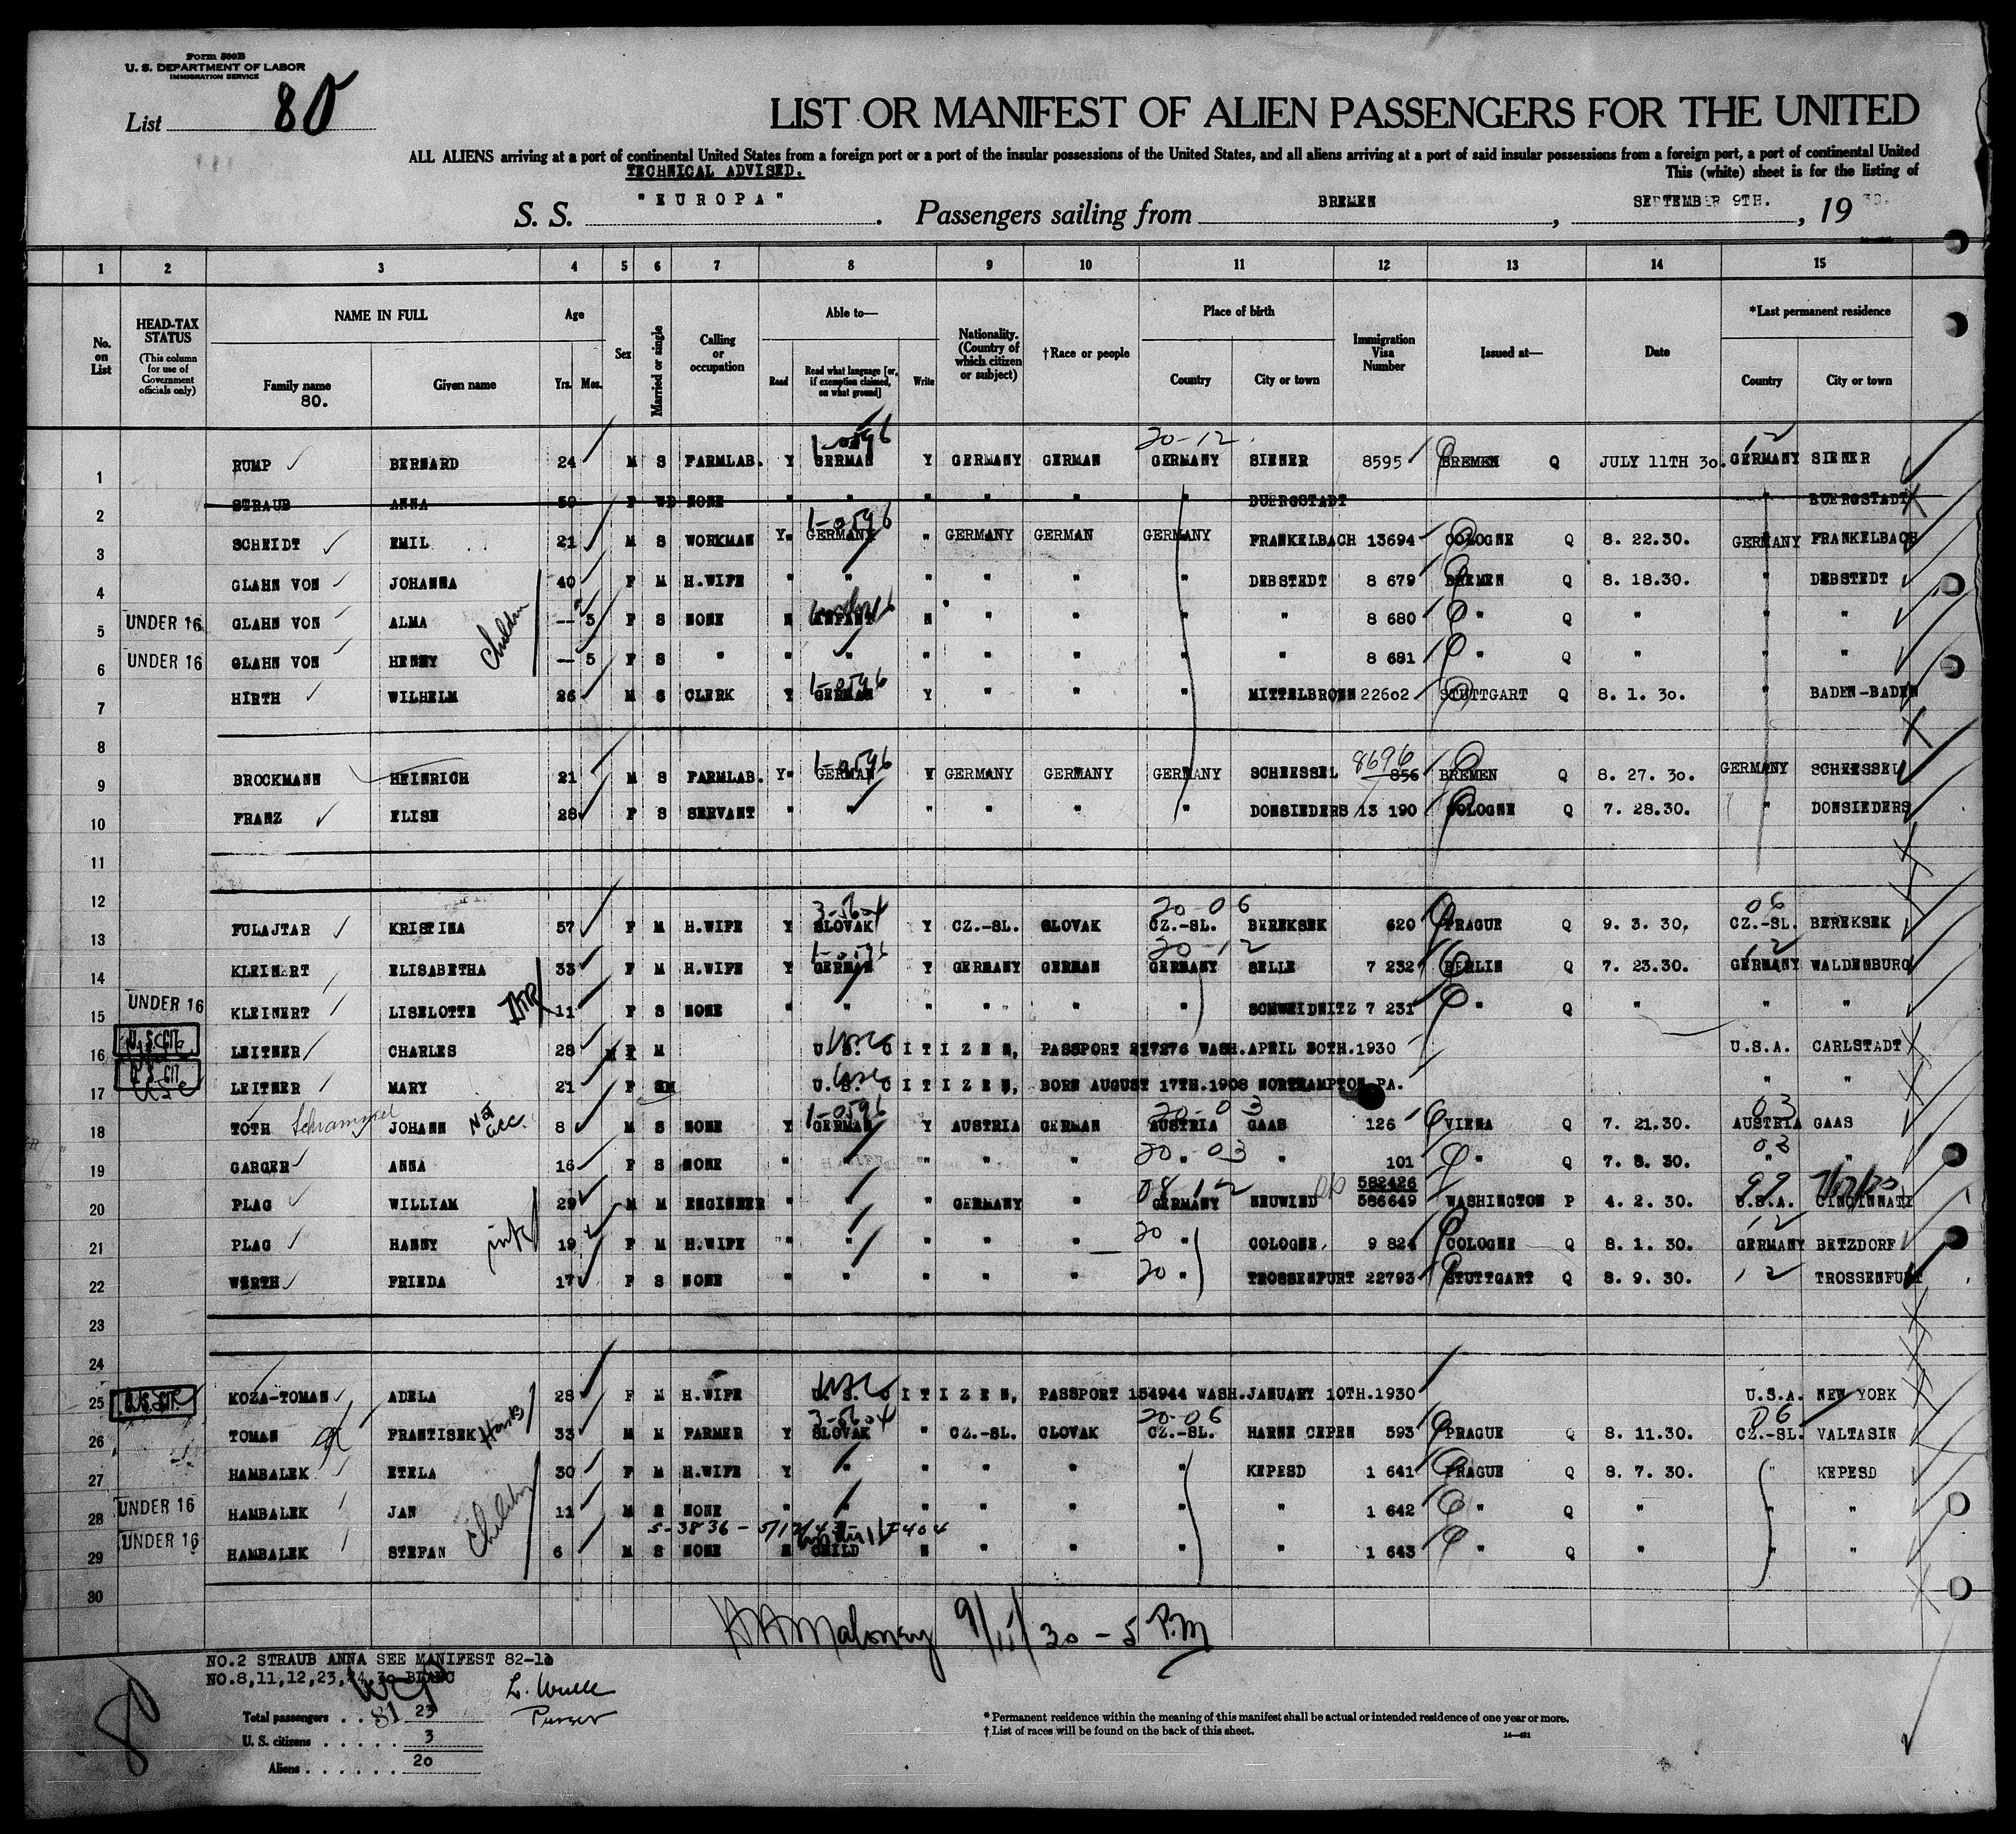 Form 500B
U. S. DEPARTMENT OF LABOR
IMMIGRATION SERVICE
List 80
LIST OR MANIFEST OF ALIEN PASSENGERS FOR THE UNITED
ALL ALIENS arriving at a port of continental United States from a foreign port or a port of the insular possessions of the United States, and all aliens arriving at a port of said insular possessions from a foreign port, a port of continental United
TECHNICAL ADVISED. This (white) sheet is for the listing of
S. S. "EUROPA". Passengers sailing from BREMEN, SEPTEMBER 9TH., 1930.
1 2 3 4 5 6 7 8 9 10 11 12 13 14 15
No. on List
HEAD-TAX STATUS (This column for use of Government officials only)
NAME IN FULL
Family name Given name
80.
Age
Yrs. Mos.
Sex
Married or single
Calling or occupation
Able to—
Read Read what language [or, if exemption claimed, on what ground] Write
Nationality. (Country of which citizen or subject)
†Race or people
Place of birth
Country City or town
Immigration Visa Number
Issued at—
Date
*Last permanent residence
Country City or town
1 RUMP BERNARD 24 M S FARMLAB. Y GERMAN Y GERMANY GERMAN GERMANY SIENER 8595 BREMEN Q JULY 11TH 30. GERMANY SIENER
2 STRAUB ANNA 59 F WD NONE " " " " " " BUERGSTADT " BUERGSTADT
3 SCHEIDT EMIL 21 M S WORKMAN Y" GERMANY " GERMANY GERMAN GERMANY FRANKELBACH 13694 COLOGNE Q 8. 22.30. GERMANY FRANKELBACH
4 GLAHN VON JOHANNA 40 F M H.WIFE " " " " " " DEBSTEDT 8 679 BREMEN Q 8. 18.30. " DEBSTEDT
5 UNDER 16 GLAHN VON ALMA Children — 5 F S NONE N INFANT N " " " " 8 680 " Q " " "
6 UNDER 16 GLAHN VON HENNY — 5 F S " " " " " " " " 8 681 " Q " " "
7 HIRTH WILHELM 26 M S CLERK Y GERMAN Y " " " MITTELBRONN 22602 STUTTGART Q 8. 1. 30. " BADEN-BADEN
8
9 BROCKMANN HEINRICH 21 M S FARMLAB. Y" GERMAN Y GERMANY GERMANY GERMANY SCHEESSEL 8696 856 BREMEN Q 8. 27. 30. GERMANY SCHEESSEL
10 FRANZ ELISE 28 F S SERVANT " " " " " " DONSIEDERS 13 190 COLOGNE Q 7. 28.30. " DONSIEDERS
11
12
13 FULAJTAR KRISTINA 57 F M H.WIFE Y SLOVAK Y CZ.-SL. SLOVAK CZ.-SL. BEREKSEK 620 PRAGUE Q 9. 3. 30. CZ.-SL. BEREKSEK
14 KLEINERT ELISABETHA 33 F M H.WIFE Y GERMAN Y GERMANY GERMAN GERMANY SELLE 7 232 BERLIN Q 7. 23.30. GERMANY WALDENBURG
15 UNDER 16 KLEINERT LISELOTTE 11 F S NONE " " " " " " SCHWEIDNITZ 7 231 " Q " " "
16 U. S. CIT. LEITNER CHARLES 28 M M U. S. CITIZEN, PASSPORT 217276 WASH.APRIL 30TH.1930 U.S.A. CARLSTADT
17 U. S. CIT. LEITNER MARY 21 F M U. S. CITIZEN, BORN AUGUST 17TH.1908 NORTHAMPTON PA. " "
18 TOTH JOHANN Not acc. 8 M S NONE Y GERMAN Y AUSTRIA GERMAN AUSTRIA GAAS 126 VIENA Q 7. 21.30. AUSTRIA GAAS
19 GARGER ANNA 16 F S NONE " " " " " " " 101 " Q 7. 8. 30. " "
20 PLAG WILLIAM 29 M M ENGINEER " " " GERMANY " GERMANY NEUWIED 582426 586649 WASHINGTON P 4. 2. 30. U.S.A. CINCINNATI
21 PLAG HANNY 19 F M H.WIFE " " " " " " COLOGNE 9 824 COLOGNE Q 8. 1. 30. GERMANY BETZDORF
22 WERTH FRIEDA 17 F S NONE " " " " " " TROSSENFURT 22793 STUTTGART Q 8. 9. 30. 12 TROSSENFURT
23
24
25 U. S. CIT. KOZA-TOMAN ADELA 28 F M H.WIFE U. S. CITIZEN, PASSPORT 154944 WASH.JANUARY 10TH.1930 U.S.A. NEW YORK
26 TOMAN FRANTISEK 33 M M FARMER Y SLOVAK " CZ.-SL. CLOVAK CZ.-SL. HARNE CEPEN 593 PRAGUE Q 8. 11.30. CZ.-SL. VALTASIN
27 HAMBALEK ETELA 30 F M H.WIFE Y " " " " " KEPESD 1 641 PRAGUE Q 8. 7. 30. " KEPESD
28 UNDER 16 HAMBALEK JAN Children 11 M S NONE " " " " " " " 1 642 " Q " " "
29 UNDER 16 HAMBALEK STEFAN 6 M S NONE N CHILD N " " " " 1 643 " Q " " "
30
9/11/30 - 5 P.M
NO.2 STRAUB ANNA SEE MANIFEST 82-13
NO.8,11,12,23,24,30 BLANC
Total passengers . . 81 23
U. S. citizens . . . . . 3
Aliens . . . . . . 20
Purser
80
* Permanent residence within the meaning of this manifest shall be actual or intended residence of one year or more.
† List of races will be found on the back of this sheet.